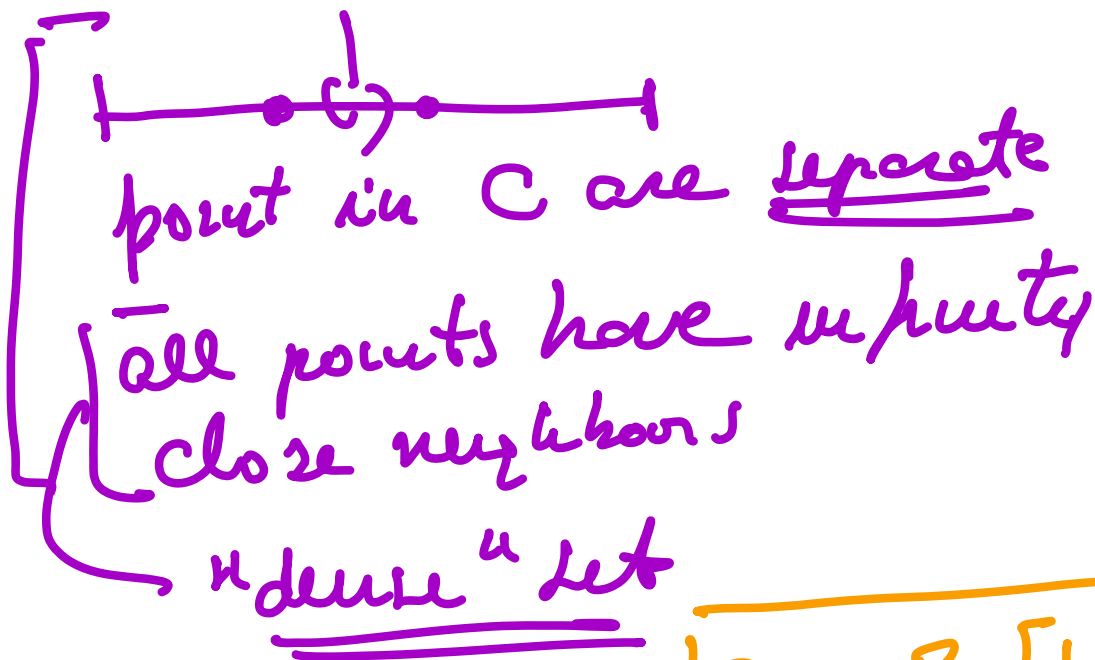 point in C are separate
all points have infinity
close neighbours
"dense" set